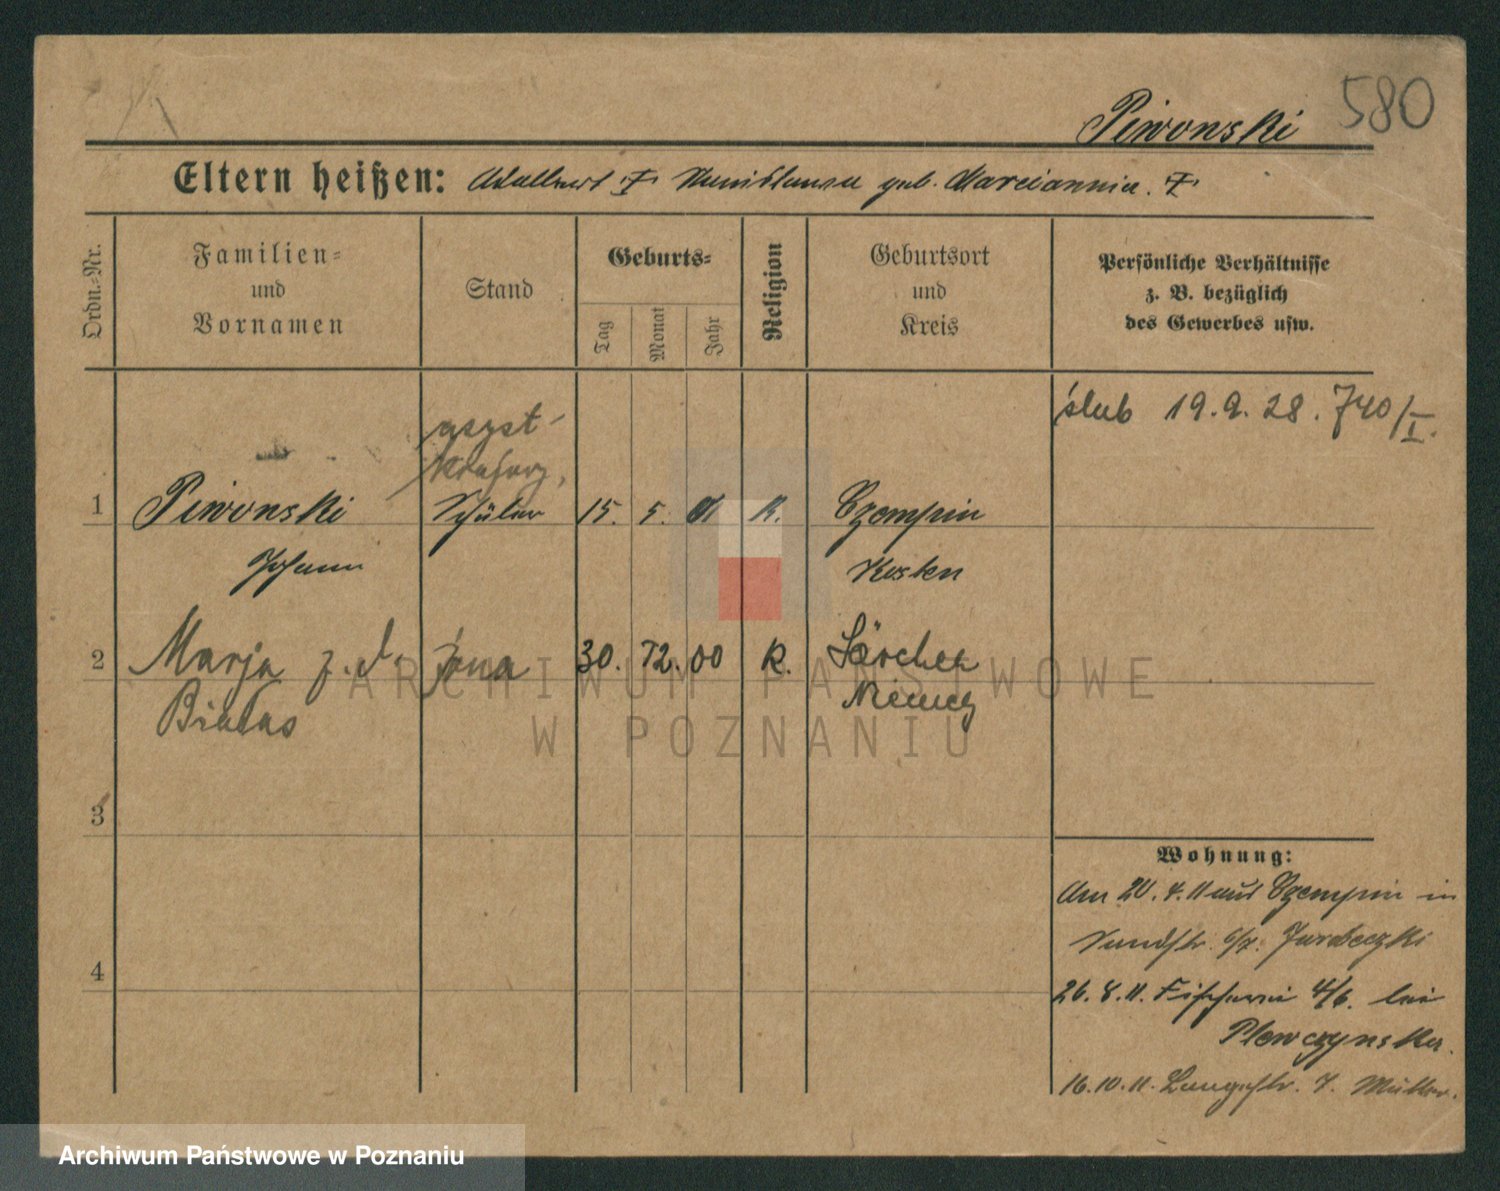 580
Piwonski
Eltern heißen: Adalbert geb. Marciannia.
Ordn.=Nr.
Familien=
und
Vornamen
Stand
Geburts=
Tag
Monat
Jahr
Religion
Geburtsort
und
Kreis
Persönliche Verhältnisse
z. B. bezüglich
des Gewerbes usw.
ślub 19.9.28. 740/I.
asyst
1 Piwonski Schüler 15. 5. K. Czempin
Johann Kosten
2 Marja z.d. żona 30. 12. 00 K. Lörchen
Białas Niemcy
3
4
Wohnung:
Am 20.4.11 aus Czempin in
26.8.11. Fischerei 4/6. bei
Plewczynska.
16.10.11. Langestr. 7. Müller.
ARCHIWUM PAŃSTWOWE
W POZNANIU
Archiwum Państwowe w Poznaniu